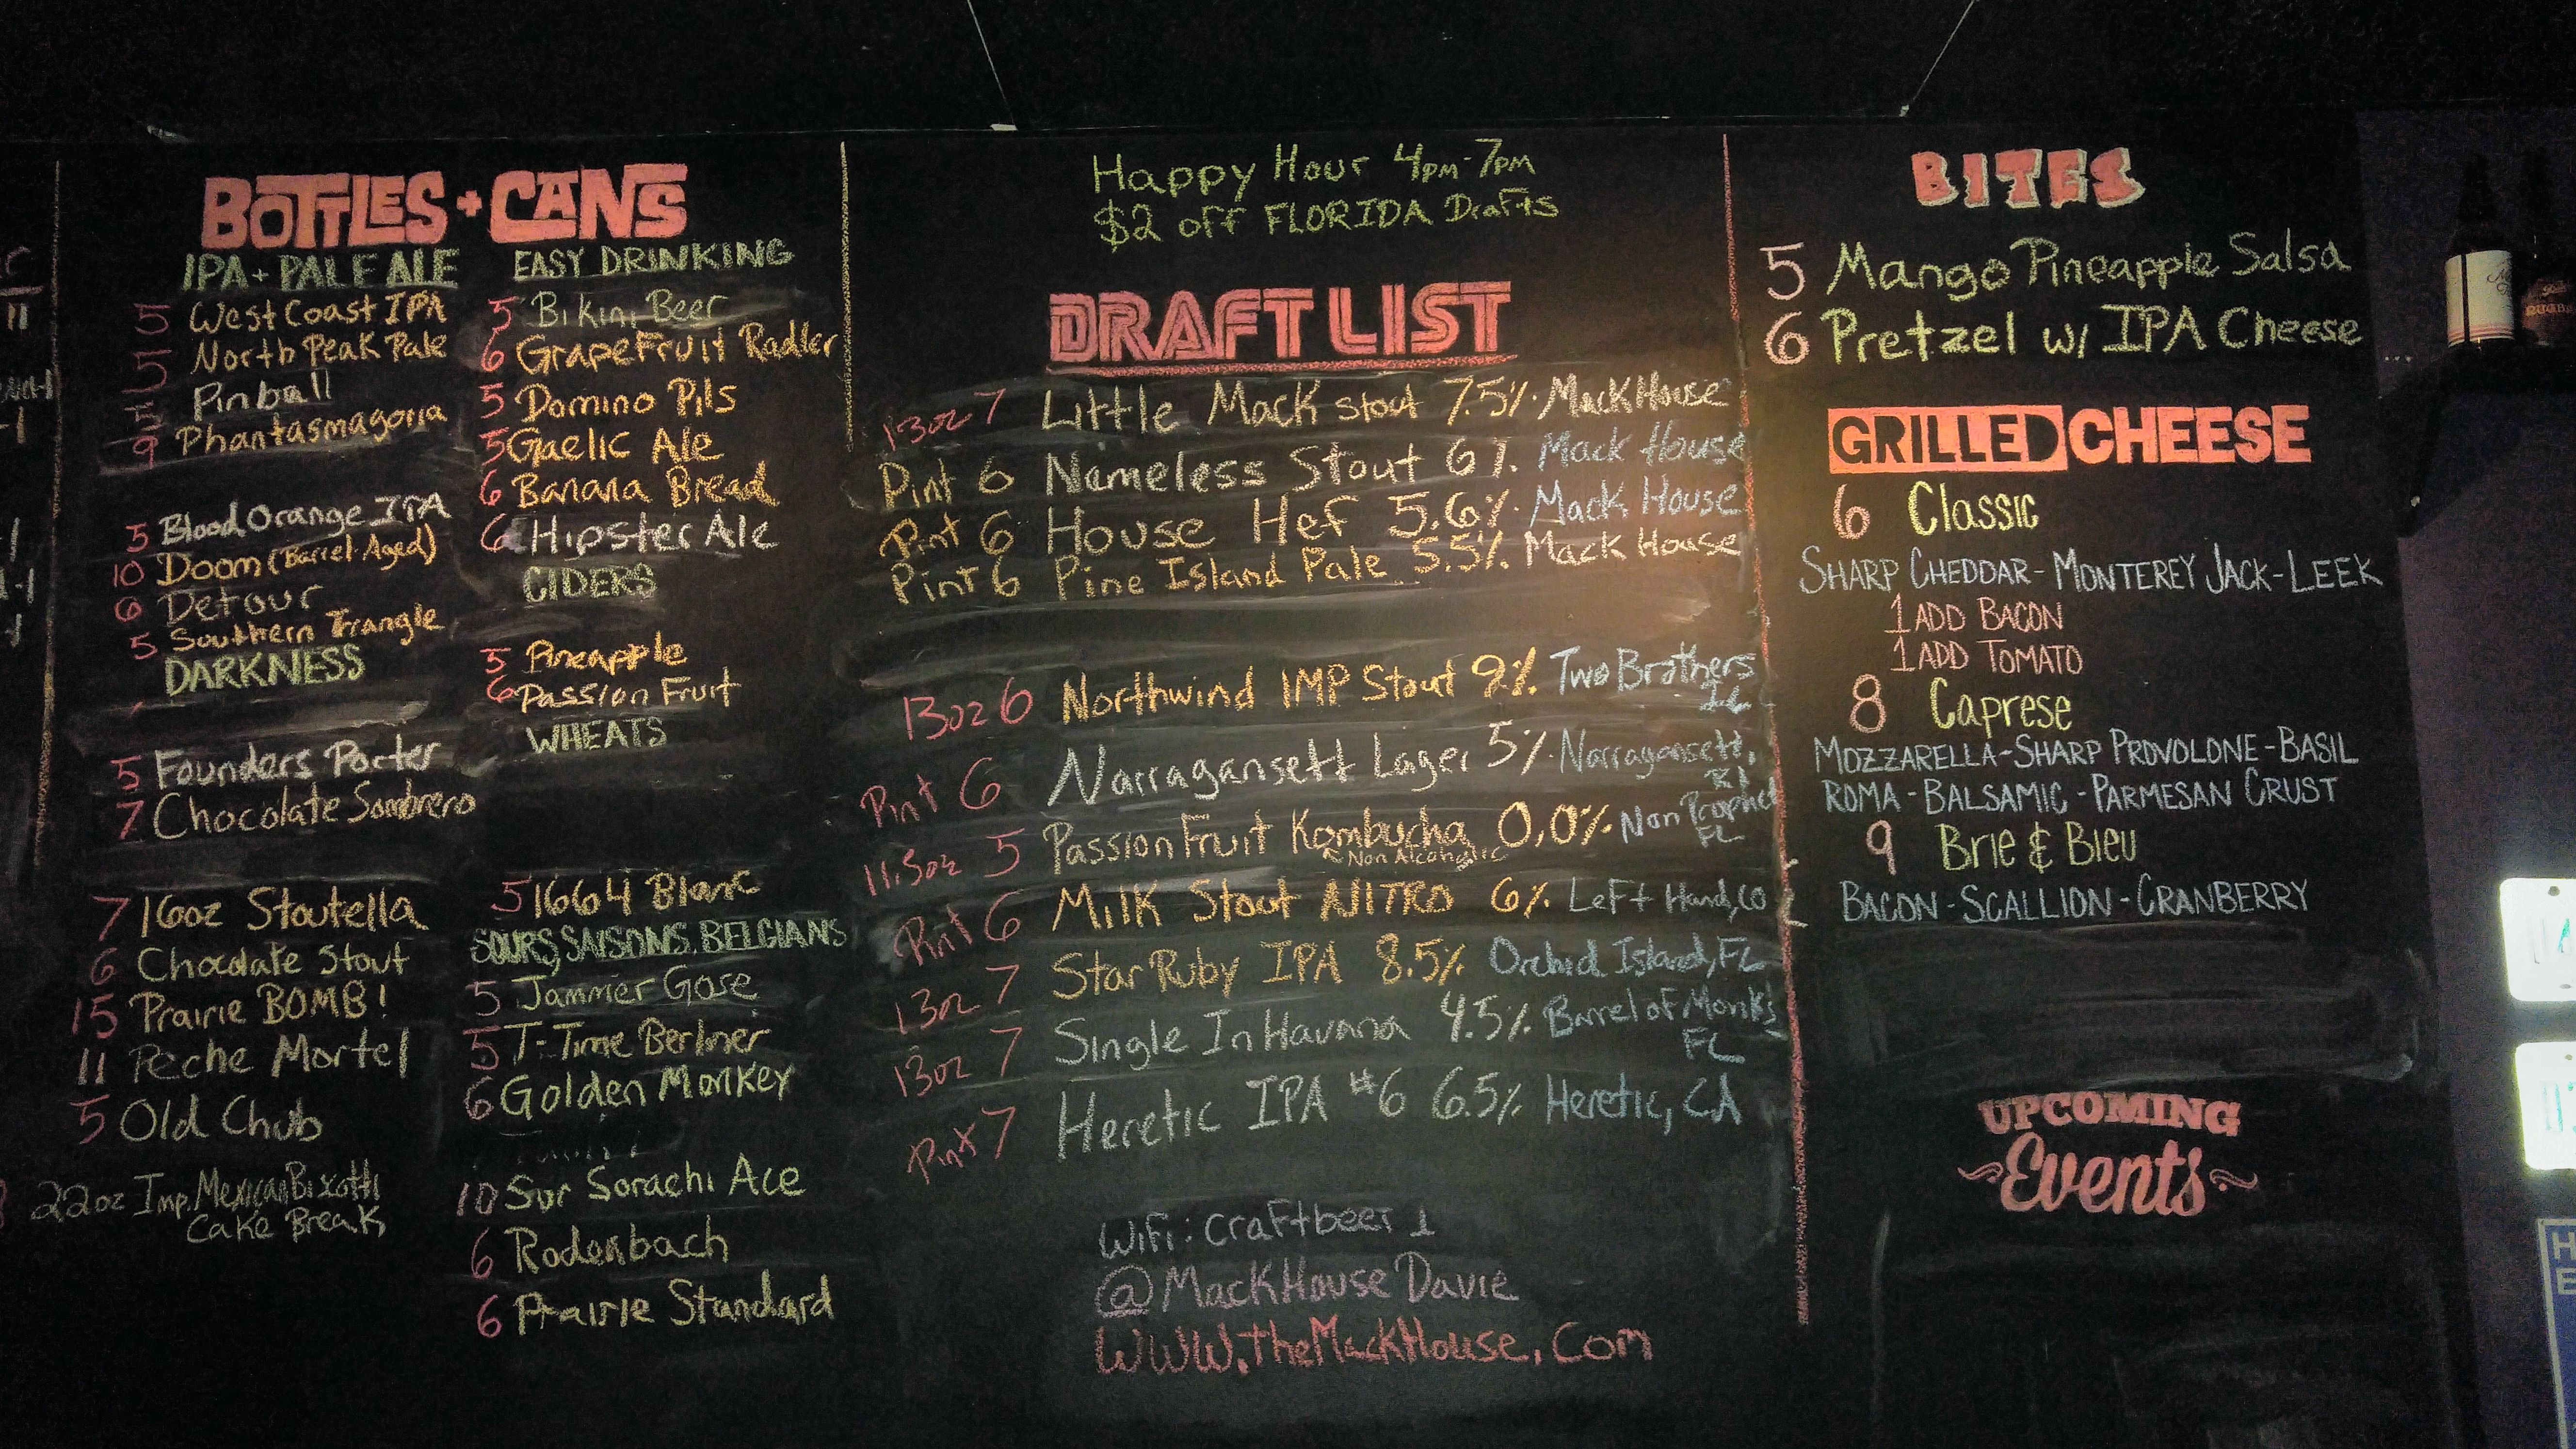 BOTTLES + CANS
IPA + PALE ALE
5 West Coast IPA
5 North Peak Pale
5 Pinball
9 Phantasmagoria
5 Blood Orange IPA
10 Doom (Barrel Aged)
6 Detour
5 Southern Triangle
DARKNESS
5 Founders Porter
7 Chocolate Sombrero
7 16oz Stoutella
6 Chocolate Stout
15 Prairie BOMB!
11 Peche Mortel
5 Old Chub
22oz Imp. Mexican Bixotti
Cake Break
EASY DRINKING
5 Bikini Beer
6 Grapefruit Radler
5 Domino Pils
5 Gaelic Ale
6 Banana Bread
6 Hipster Ale
CIDERS
5 Pineapple
6 Passion Fruit
WHEATS
5 1664 Blanc
SOURS, SAISONS, BELGIANS
5 Jammer Gose
5 T-Time Berliner
6 Golden Monkey
10 Sur Sorachi Ace
6 Rodenbach
6 Prairie Standard
Happy Hour 4pm-7pm
$2 off FLORIDA Drafts
DRAFT LIST
13oz 7 Little Mack Stout 7.5% Mack House
Pint 6 Nameless Stout 6% Mack House
Pint 6 House Hef 5.6% Mack House
Pint 6 Pine Island Pale 5.5% Mack House
13oz 6 Northwind IMP Stout 9% Two Brothers
IL
Pint 6 Narragansett Lager 5% Narragansett,
RI
11.5oz 5 Passion Fruit Kombucha 0.0% Non Prophet
Non Alcoholic FL
Pint 6 Milk Stout NITRO 6% Left Hand, CO
13oz 7 Star Ruby IPA 8.5% Orchid Island, FL
13oz 7 Single In Havana 4.5% Barrel of Monks
FL
Pint 7 Heretic IPA #6 6.5% Heretic, CA
Wifi: craftbeer 1
@MackHouseDavie
www.TheMackHouse.Com
BITES
5 Mango Pineapple Salsa
6 Pretzel w/ IPA Cheese
GRILLED CHEESE
6 Classic
SHARP CHEDDAR - MONTEREY JACK - LEEK
1 ADD BACON
1 ADD TOMATO
8 Caprese
MOZZARELLA - SHARP PROVOLONE - BASIL
ROMA - BALSAMIC - PARMESAN CRUST
9 Brie & Bleu
BACON - SCALLION - CRANBERRY
UPCOMING
Events